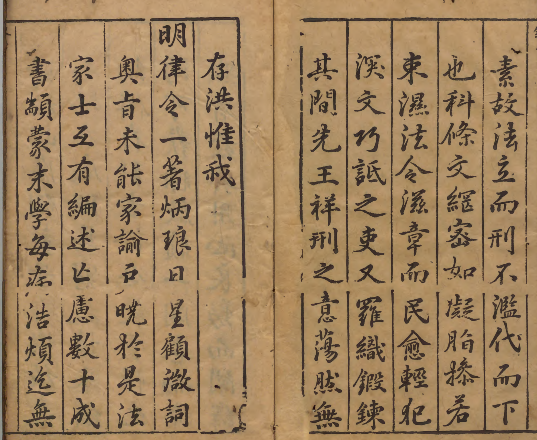 素故法立而刑不濫代而下
也科條文網密如凝脂摻若
束濕法令滋章而民愈輕犯
深文巧詆之吏又羅織鍛鍊
其間先王祥刑之意蕩然無
存洪惟我
明律令一著炳琅日星顧微詞
奥旨未能家諭戸曉於是法
家士互有編述亡慮數十成
書顓蒙末學每病浩煩迄無